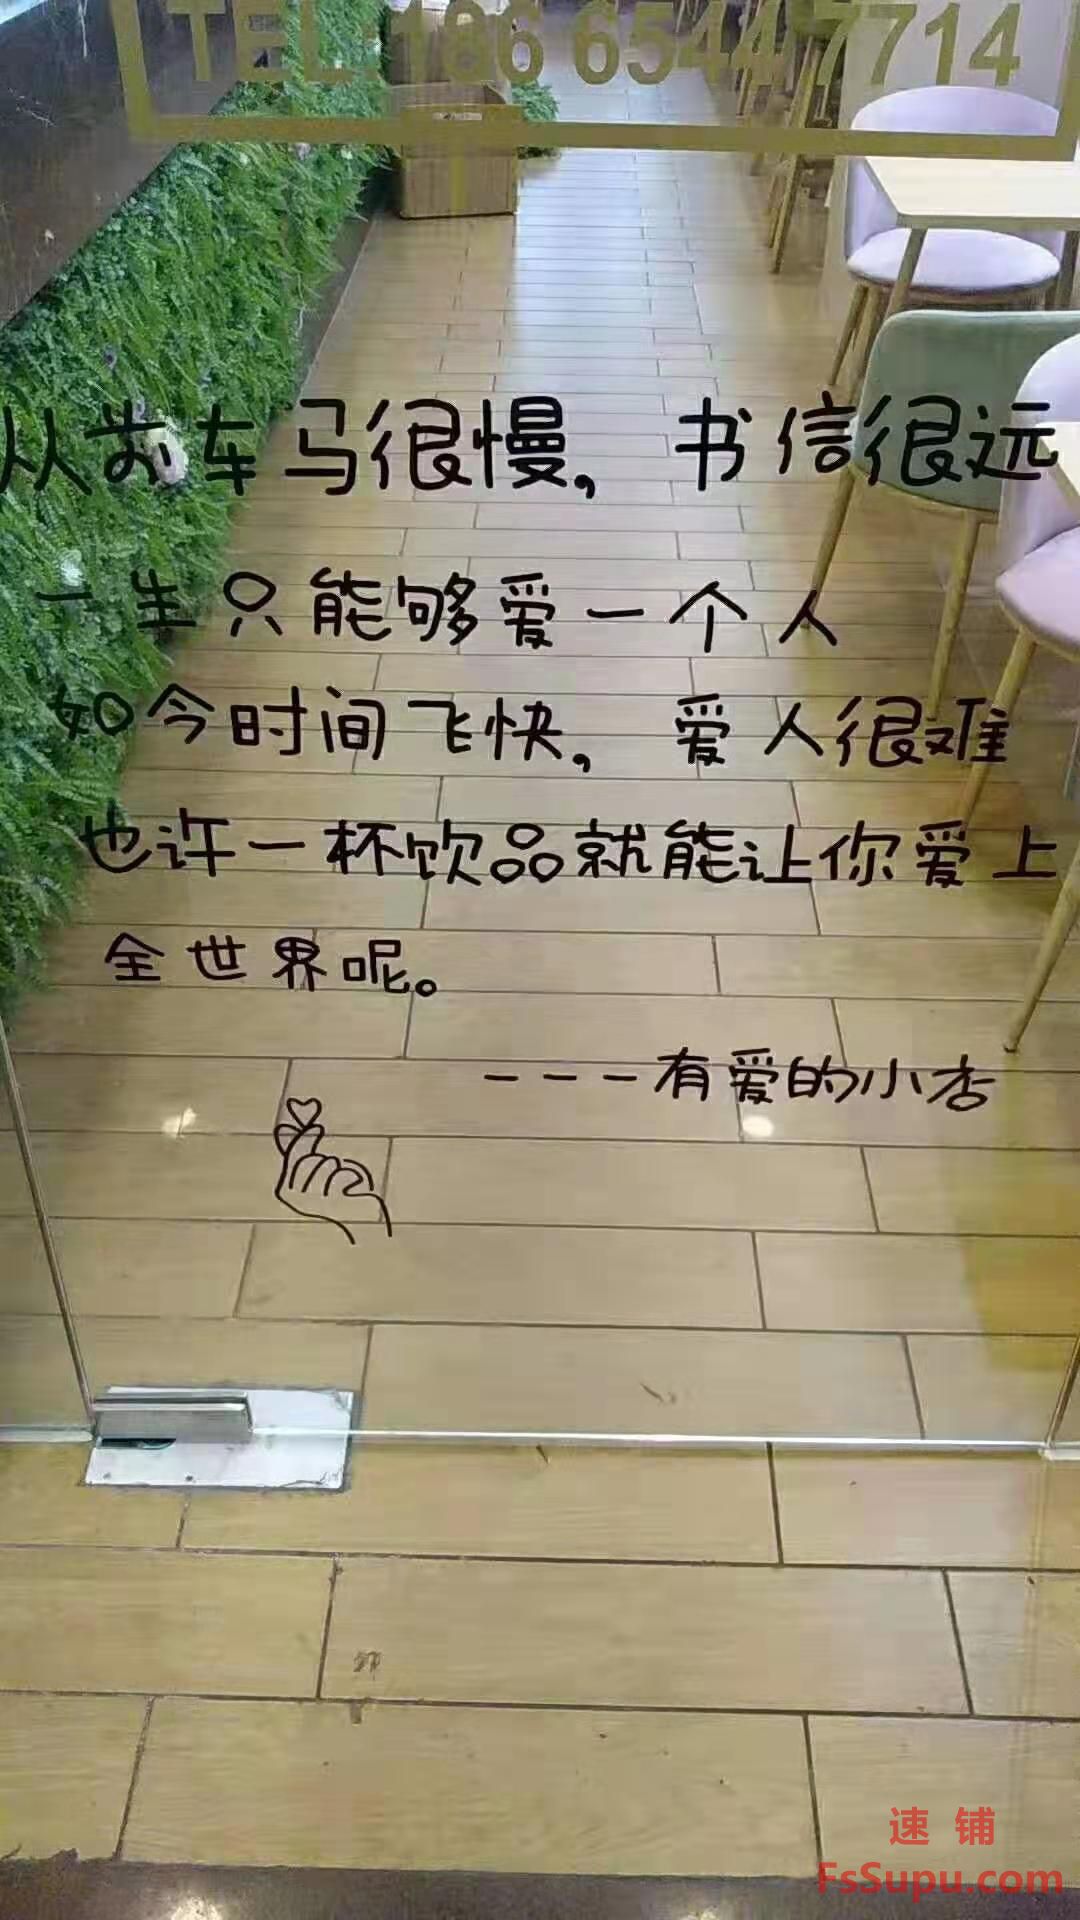 TEL: 186 6544 7714
从前车马很慢，书信很远
一生只能够爱一个人
如今时间飞快，爱人很难
也许一杯饮品就能让你爱上
全世界呢。
---有爱的小店
速铺
FsSupu.com